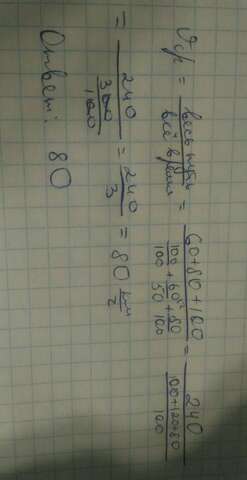 Vср = весь путь / всё время = 60+80+100 / 100/100 + 60/50 + 80/100 = 240 / 100+120+80/100
= 240 / 300/100 = 240/3 = 80 км/ч
Ответ: 80